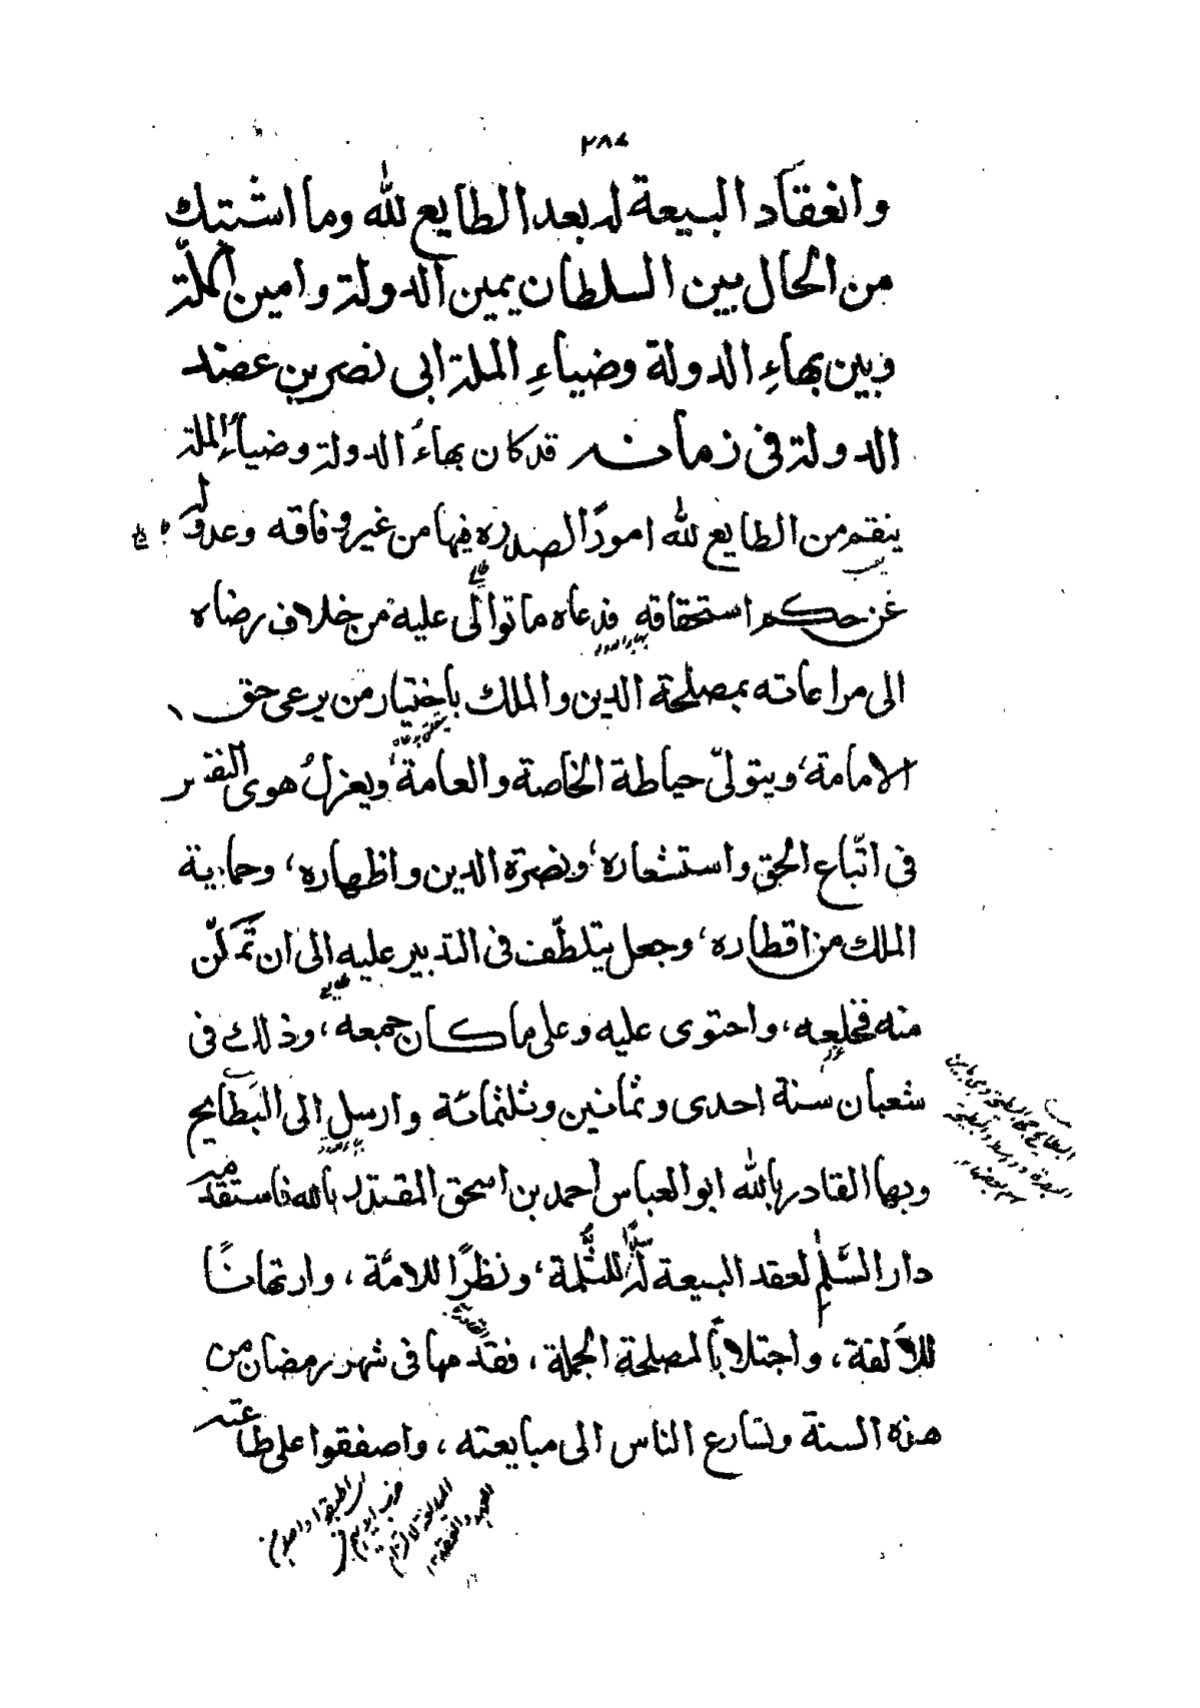 ٢٨٤
وانعقاد البيعة له بعد الطايع لله وما اشتبك
من الحال بين السلطان يمين الدولة وامين الملّة
وبين بهاءِ الدولة وضياءِ الملة ابى نصر بن عضد
الدولة فى زمانه قد كان بهاءُ الدولة وضياءُ الملة
ينقم من الطايع لله امورًا لصدره فيها من غير وفاقه وعدوله
عن حكم استحقاقه فدعاه ما توالى عليه من خلاف رضاه
الى مراعاته بمصلحة الدين والملك باختيار من يرعى حق
الامامة، ويتولّى حياطة الخاصة والعامة، ويعزلُ هوى النفس
فى اتّباع الحق واستشعاره، ونصرة الدين واظهاره، وحماية
الملك من اقطاره، وجعل يتلطّف فى التدبير عليه الى ان تمَكّن
منه فخلعه، واحتوى عليه وعلى ما كان جمعه، وذلك فى
شعبان سنة احدى وثمانين وثلثمائة وارسل الى البَطايح
وبها القادر بالله ابو العباس احمد بن اسحق المقتدر بالله فاستقدمه
دار السَّلٰم لعقد البيعة له سدًّا للثُّلمة، ونظرًا للامّة، وارتهانًا
للأُلفة، واجتلابًا لمصلحة الجملة، فقدمها فى شهر رمضان من
هذه السنة وتسارع الناس الى مبايعته، واصفقوا على طاعته